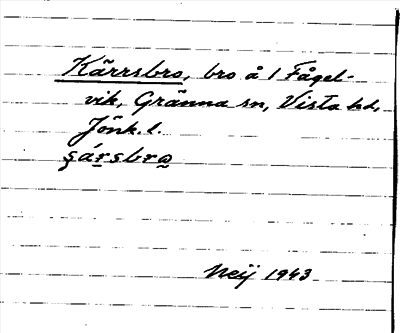 Kärrsbro, bro å 1 Fågel-
vik, Gränna sn, Vista hd,
Jönk. l.
Neij 1963